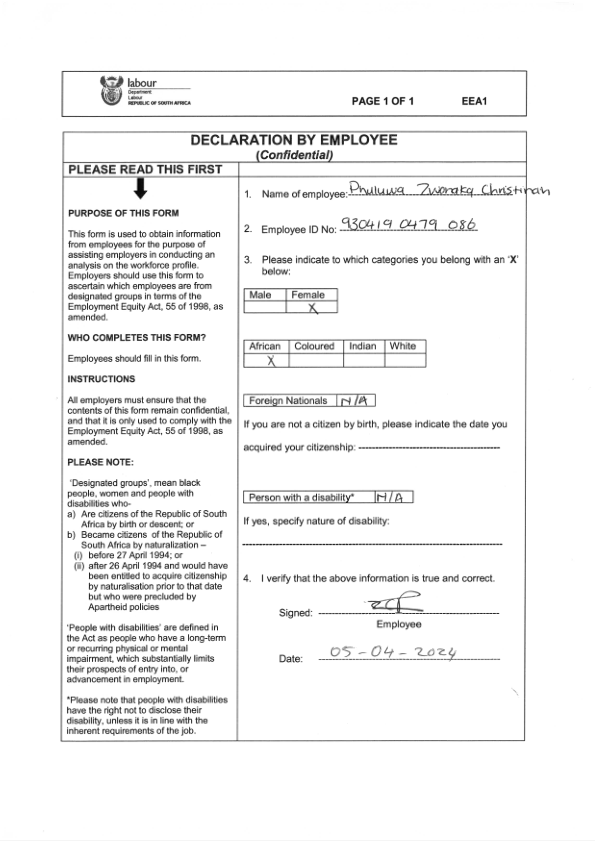 labour
Department:
Labour
REPUBLIC OF SOUTH AFRICA
PAGE 1 OF 1 EEA1
DECLARATION BY EMPLOYEE
(Confidential)
PLEASE READ THIS FIRST
PURPOSE OF THIS FORM
This form is used to obtain information
from employees for the purpose of
assisting employers in conducting an
analysis on the workforce profile.
Employers should use this form to
ascertain which employees are from
designated groups in terms of the
Employment Equity Act, 55 of 1998, as
amended.
WHO COMPLETES THIS FORM?
Employees should fill in this form.
INSTRUCTIONS
All employers must ensure that the
contents of this form remain confidential,
and that it is only used to comply with the
Employment Equity Act, 55 of 1998, as
amended.
PLEASE NOTE:
'Designated groups', mean black
people, women and people with
disabilities who-
a) Are citizens of the Republic of South
Africa by birth or descent; or
b) Became citizens of the Republic of
South Africa by naturalization –
(i) before 27 April 1994; or
(ii) after 26 April 1994 and would have
been entitled to acquire citizenship
by naturalisation prior to that date
but who were precluded by
Apartheid policies
'People with disabilities' are defined in
the Act as people who have a long-term
or recurring physical or mental
impairment, which substantially limits
their prospects of entry into, or
advancement in employment.
*Please note that people with disabilities
have the right not to disclose their
disability, unless it is in line with the
inherent requirements of the job.
1. Name of employee: Phuluwa Zwonaka Christinah
2. Employee ID No: 930419 0479 086
3. Please indicate to which categories you belong with an 'X'
below:
Male Female
X
African Coloured Indian White
X
Foreign Nationals N/A
If you are not a citizen by birth, please indicate the date you
acquired your citizenship:
Person with a disability* N/A
If yes, specify nature of disability:
4. I verify that the above information is true and correct.
Signed:
Employee
Date: 05-04-2024